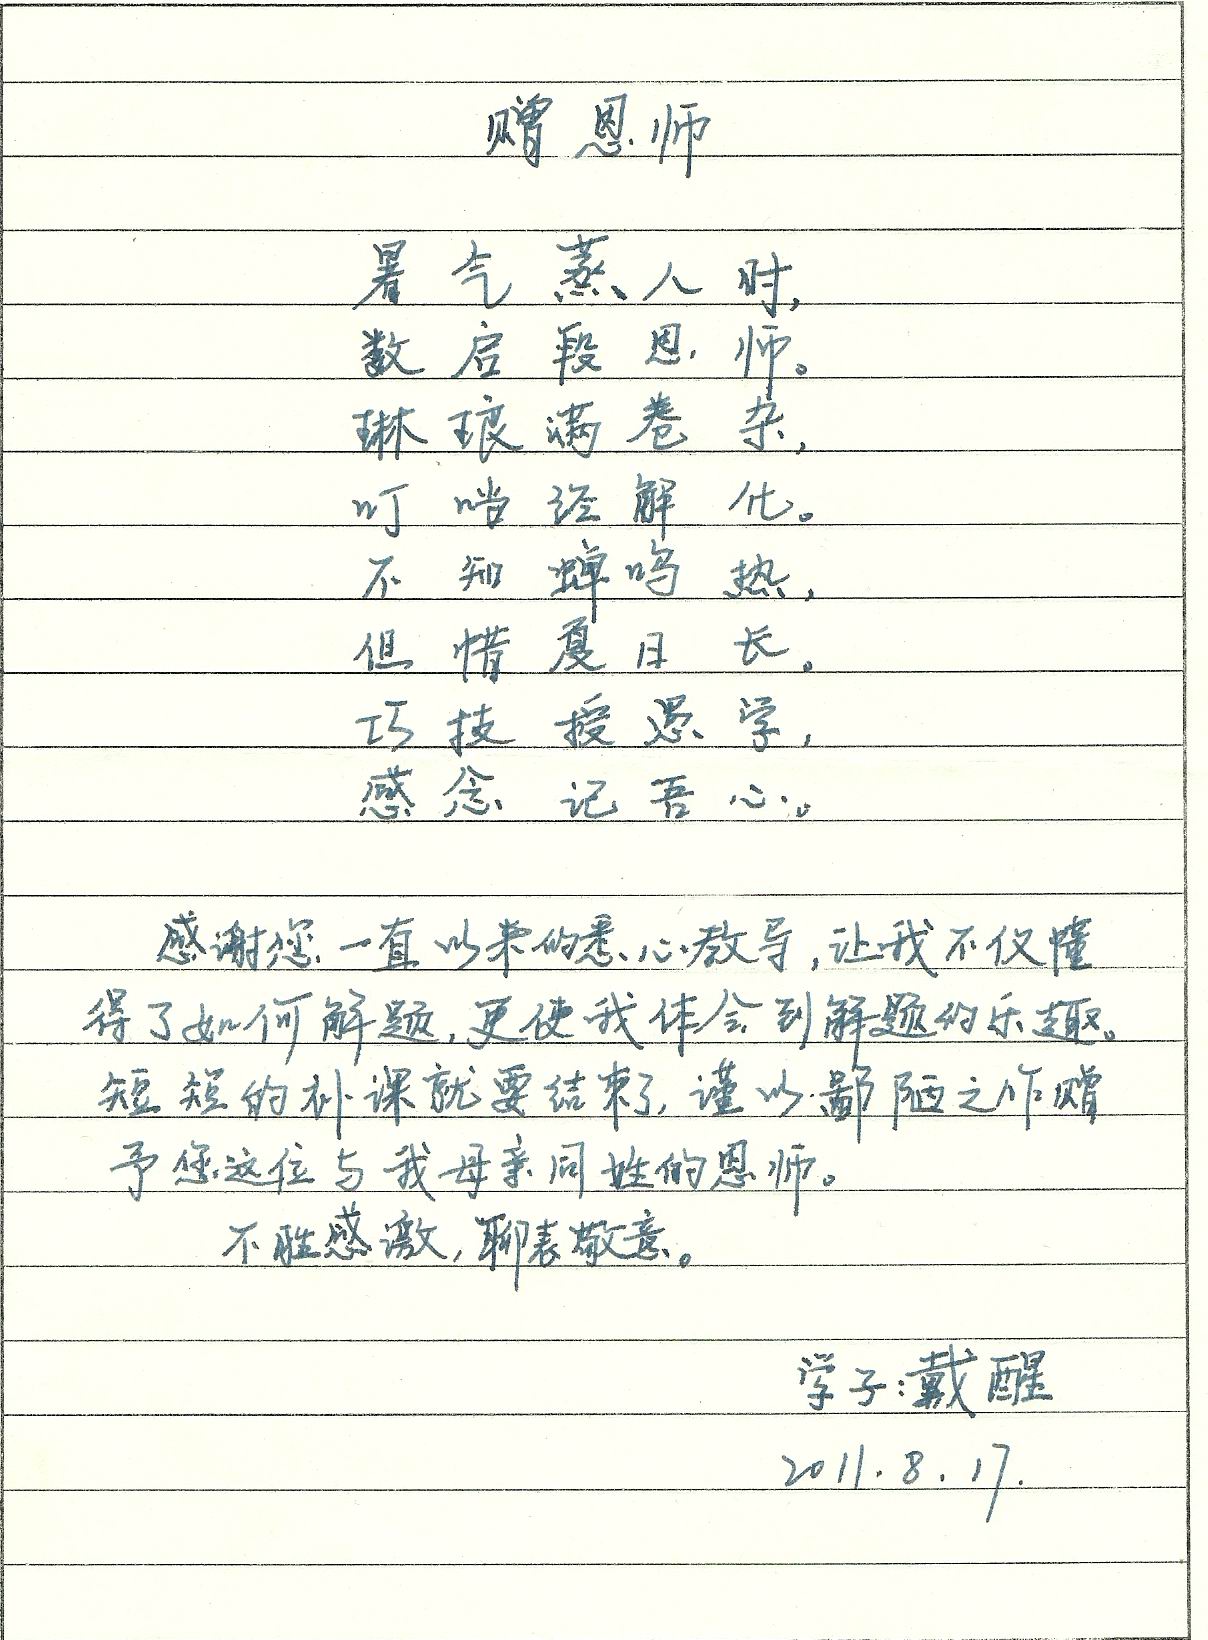 赠恩师
暑气蒸人时,
数启段恩师。
琳琅满卷杂,
叮咛经解化。
不知蝉鸣热,
但惜夏日长。
巧技授愚学,
感念记吾心。
感谢您一直以来的悉心教导,让我不仅懂
得了如何解题,更使我体会到解题的乐趣。
短短的补课就要结束了,谨以鄙陋之作赠
予您这位与我母亲同姓的恩师。
不胜感激,聊表敬意。
学子:戴醒
2011.8.17.